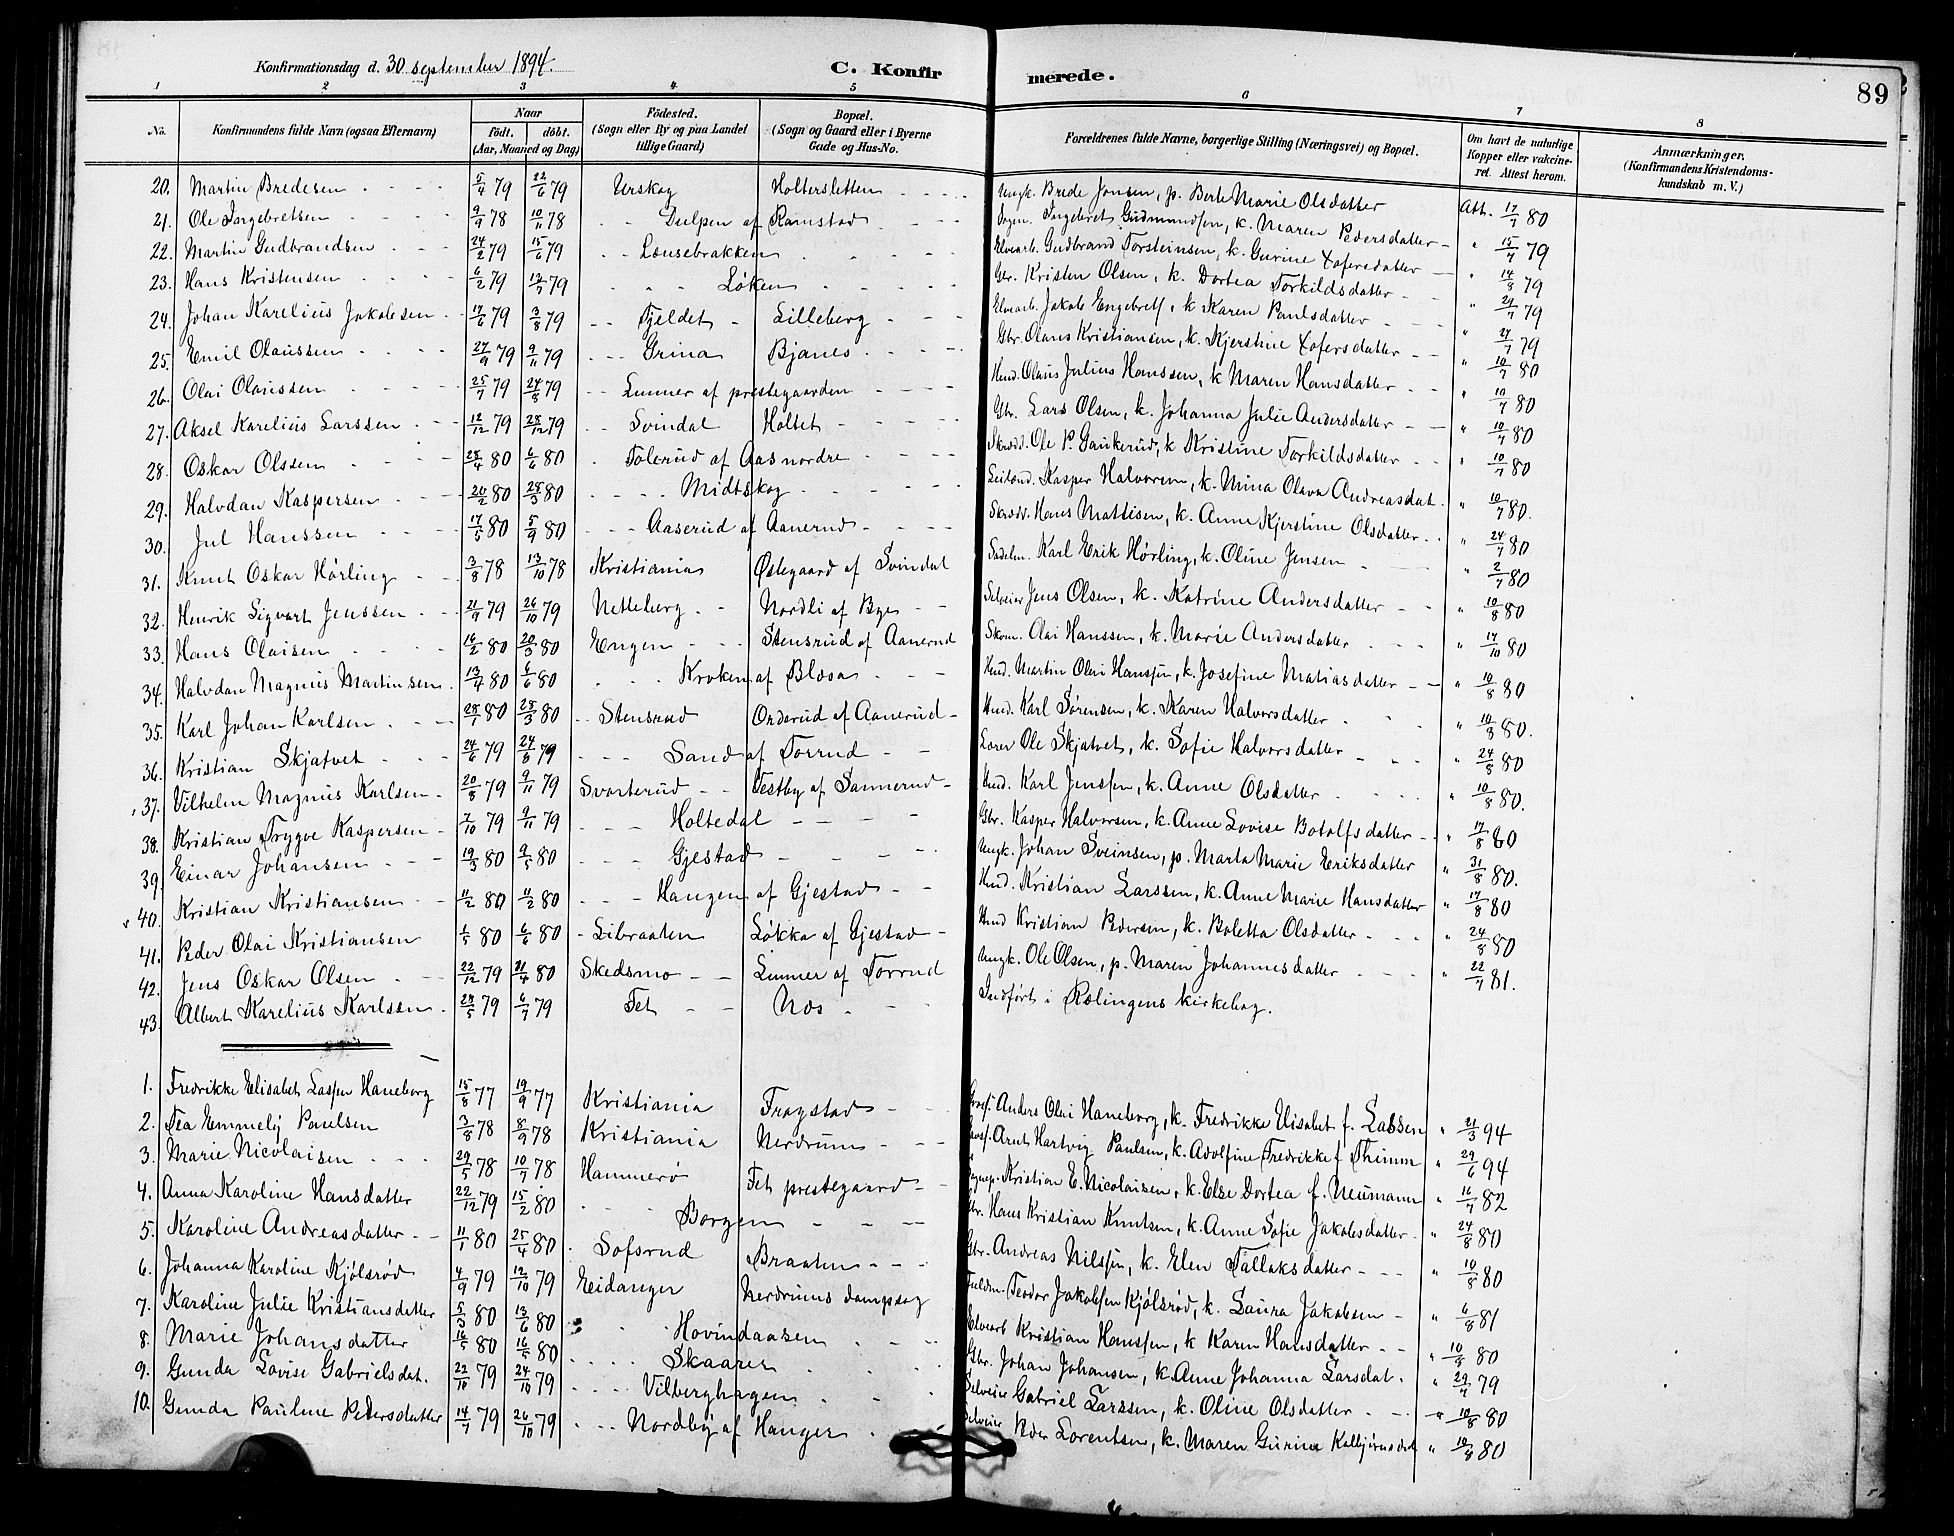 Konfirmationsdag d. 30 september 1894. C. Konfirmerede. 89
1 2 3 4 5 6 7 8
No. Konfirmandens fulde Navn (ogsaa Efternavn) Naar født. døbt. (Aar, Maaned og Dag) Fødested. (Sogn eller By og paa Landet tillige Gaard) Bopæl. (Sogn og Gaard eller i Byerne Gade og Hus-No. Forældrenes fulde Navne, borgerlige Stilling (Næringsvei) og Bopæl. Om havt de naturlige Kopper eller vakcineret. Attest herom. Anmærkninger. (Konfirmandens Kristendomskundskab m. V.)
20. Martin Bredesen 5/4 79 22/6 79 Urskog Holtersletten Ungk. Brede Jonsen, p. Berte Marie Olsdatter Att. 17/7 80
21. Ole Ingebretsen 9/9 78 10/11 78 Dulpen af Ramstad Ingebret Gudmundsen, k. Maren Pedersdatter " 15/7 79
22. Martin Gudbrandsen 24/2 79 15/6 79 Lousebrakken Elvearb. Gudbrand Torsteinsen, k. Gurine Xofersdatter " 14/8 79
23. Hans Kristensen 6/2 79 13/7 79 Løken Gbr. Kristen Olsen, k. Dortea Torkildsdatter " 24/7 79
24. Johan Karelius Jakobsen 17/6 79 3/8 79 Fjeldet Lilleberg Elvearb. Jakob Engebrets, k Karen Paulsdatter " 24/7 79
25. Emil Olaussen 27/9 79 9/11 79 Grina Bjanes Gbr. Olaus Kristiansen, k. Kjerstine Xofersdatter " 10/7 80
26. Olai Olaussen 25/7 79 24/8 79 Lunner af prestegaarden Hmd. Olaus Julius Hanssen, k Maren Hansdatter " 10/7 80
27. Aksel Karelius Larssen 12/12 79 28/12 79 Svindal Holtet Gbr. Lars Olsen, k. Johanna Julie Andersdatter " 10/7 80
28. Oskar Olssen 28/4 80 6/6 80 Tolerud af Aas nordre Skrædd. Ole P. Gaukerud, k Kristine Torkildsdatter " 10/7 80
29. Halvdan Kaspersen 20/2 80 28/3 80 Midtskog Leilænd. Kasper Halvorsen, k. Mina Olava Andreasdat. " 10/7 80.
30. Jul Hanssen 17/5 80 5/9 80 Aaserud af Aanerud Skrædr. Hans Mattisen, k. Anne Kjerstine Olsdatter " 24/7 80
31. Knut Oskar Hørling 3/8 78 13/10 78 Kristiania Østegaard af Svindal Sadelm. Karl Erik Hørling, k. Oline Jensen " 2/7 80
32. Henrik Sigvart Jenssen 21/9 79 26/10 79 Netteberg Nordli af Bye Selveier Jens Olsen, k. Katrine Andersdatter " 10/8 80
33. Hans Olaisen 16/2 80 20/3 80 Engen Stensrud af Aanerud Skom. Olai Hanssen, k. Marie Andersdatter " 17/10 80
34. Halvdan Magnus Martinsen 13/4 80 6/6 80 Kroken af Blæsa Hmd. Martin Olai Hanssen, k. Josefine Matiasdatter " 10/8 80
35. Karl Johan Karlsen 28/1 80 28/3 80 Stensrud Orderud af Aanerud Hmd. Karl Sørensen, k. Karen Halvorsdatter " 10/8 80.
36. Kristian Skjatvet 24/6 79 24/8 79 Sand af Torrud Lærer Ole Skjatvet, k. Sofie Halvorsdatter " 24/8 80
37. Vilhelm Magnus Karlsen 20/8 79 9/11 79 Svarterud Vestby af Sannerud Hmd. Karl Jenssen, k. Anne Olsdatter " 10/8 80.
38. Kristian Trygve Kaspersen 7/10 79 9/11 79 Holtedal Gbr. Kasper Halvorsen, k. Anne Lovise Botolfsdatter " 17/8 80
39. Einar Johansen 19/3 80 9/5 80 Gjestad Ungk. Johan Sveinsen, p. Marta Marie Eriksdatter " 31/8 80.
40. Kristian Kristiansen 11/2 80 11/2 80 Haugen af Gjestad Hmd. Kristian Larssen, k. Anne Marie Hansdatter " 17/8 80
41. Peder Olai Kristiansen 1/5 80 6/6 80 Libraaten Løkka af Gjestad Hmd Kristian Pedersen, k. Boletta Olsdatter " 24/8 80
42. Jens Oskar Olsen 22/12 79 21/4 80 Skedsmo Lunner af Torrud Ungk. Ole Olsen, p. Maren Johannesdatter " 22/7 81.
43. Albert Karelius Karlssen 28/5 79 6/7 79 Fet Næs Indført i Rælingens kirkebog.
1. Fredrikke Elisabet Lassen Haneborg 15/8 77 19/9 77 Kristiania Frogstad Anders Olai Haneborg, k. Fredrikke Elisabet f. Lassen " 21/3 94
2. Tea Emmely Paulsen 3/8 78 8/9 78 Kristiania Nerdrum Arnt Hartvig Paulsen, k. Adolfine Fredrikke f Thimm " 29/6 94
3. Marie Nicolaisen 29/5 78 10/7 78 Hammerø Fet prestegaard Kristian E. Nicolaisen, k. Else Dortea f. Neumann " 16/7 82
4. Anna Karoline Hansdatter 22/12 79 15/2 80 Borgen Gbr. Hans Kristian Knutsen, k. Anne Sofie Jakobsdatter " 24/8 80
5. Karoline Andreasdatter 11/1 80 25/4 80 Sofsrud Braaten Gbr. Andreas Nilssen, k. Elen Tallaksdatter " 10/8 80
6. Johanna Karoline Kjølsrød 4/9 79 12/10 79 Eidanger Nerdrums dampsag Fuldm. Teodor Jakobsen Kjølsrød, k. Laura Jakobsen " 6/8 81
7. Karoline Julie Kristiansdatter 5/3 80 13/6 80 Hovindaasen Elvearb Kristian Hanssen, k Karen Hansdatter " 10/8 80
8. Marie Johansdatter 16/5 80 16/5 80 Skaarer Gbr. Johan Johansen, k. Anne Johanna Larsdat. " 29/7 79
9. Gunda Lovise Gabrielsdat. 22/10 79 24/10 79 Vilberghagen Selveier Gabriel Larssen, k. Oline Olsdatter " 10/8 80
10. Gunda Pauline Pedersdatter 14/7 79 26/10 79 Nordby af Hanger Selveier Peder Lorentsen, k. Maren Gurine Kolbjørnsdat " 10/8 80